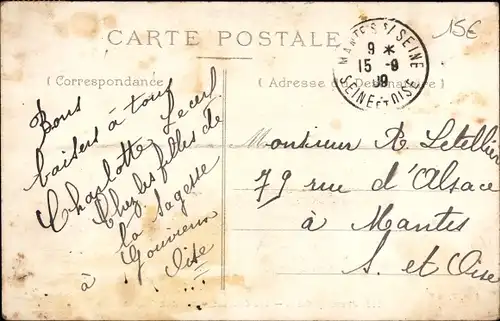 15€
CARTE POSTALE
MANTES S/ SEINE
9 *
15 - 9
09
SEINE ET OISE
( Correspondance )
( Adresse du Destinataire )
Bons
baisers à tous
Charlotte Lecerf
Chez les filles de
la Sagesse
à Gouvieux
Oise
Monsieur R Letellier
79 rue d'Alsace
à Mantes
S. et Oise